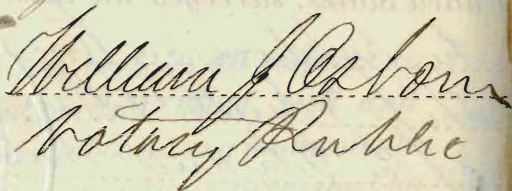 William J Osborn
Notary Public